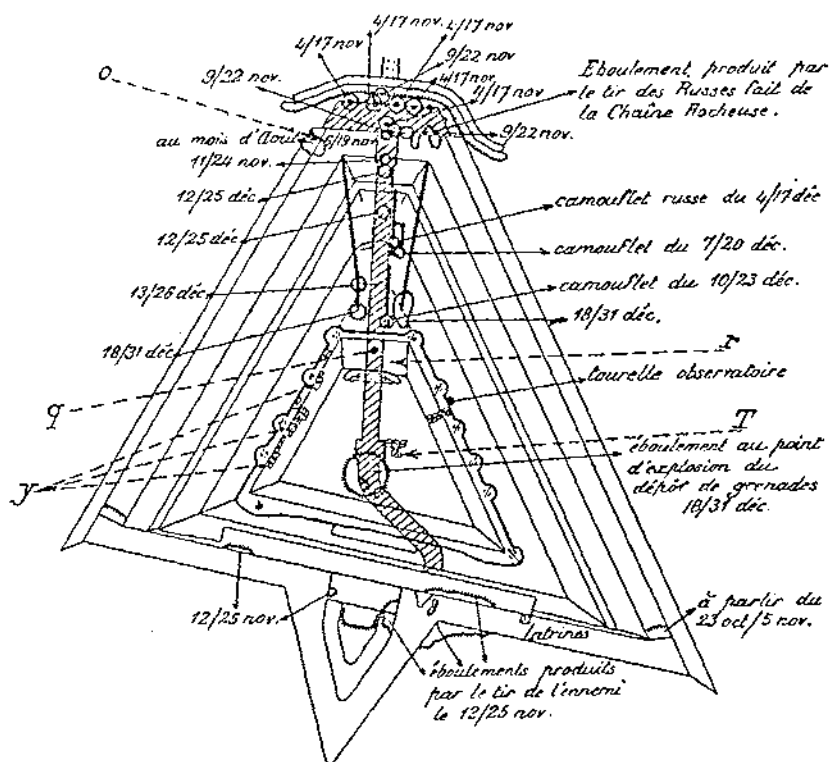 4/17 nov.
4/17 nov
4/17 nov
9/22 nov
o
9/22 nov.
4/17 nov
4/17 nov
Eboulement produit par
le tir des Russes fait de
la Chaîne Rocheuse.
au mois d'Août
6/19 nov
9/22 nov.
11/24 nov.
12/25 déc
camouflet russe du 4/17 déc
12/25 déc
camouflet du 7/20 déc.
13/26 déc
camouflet du 10/23 déc.
18/31 déc.
18/31 déc
r
tourelle observatoire
q
T
éboulement au point
d'explosion du
dépôr de grenades
18/31 déc.
y
à partir du
23 oct/5 nov.
12/25 nov.
Latrines
éboulements produits
par le tir de l'ennemi
le 12/25 nov.